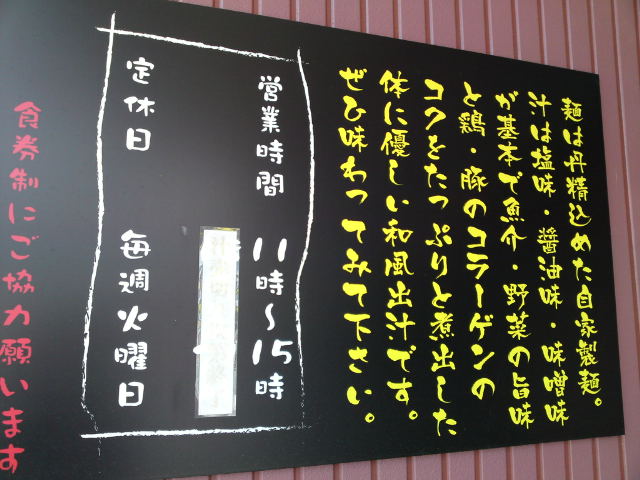 麺は丹精込めた自家製麺。
汁は塩味・醤油味・味噌味
が基本で魚介・野菜の旨味
と鶏・豚のコラーゲンの
コクをたっぷりと煮出した
体に優しい和風出汁です。
ぜひ味わってみて下さい。
営業時間 11時〜15時
定休日 毎週火曜日
食券制にご協力願います